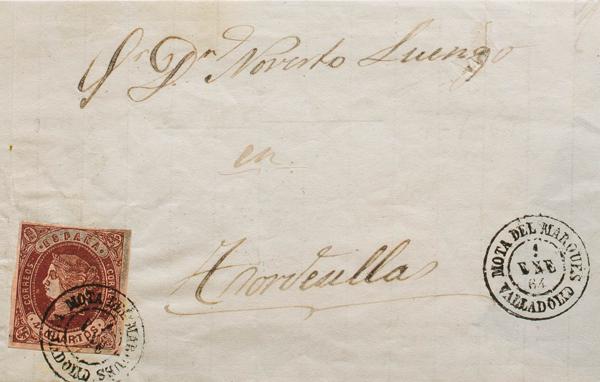 Sr. Dn. Noverto Luengo
en
Tordesillas
ESPAÑA
CORREOS
4 CUARTOS
MOTA DEL MARQUES
VALLADOLID
MOTA DEL MARQUES
1
ENE
64
VALLADOLID